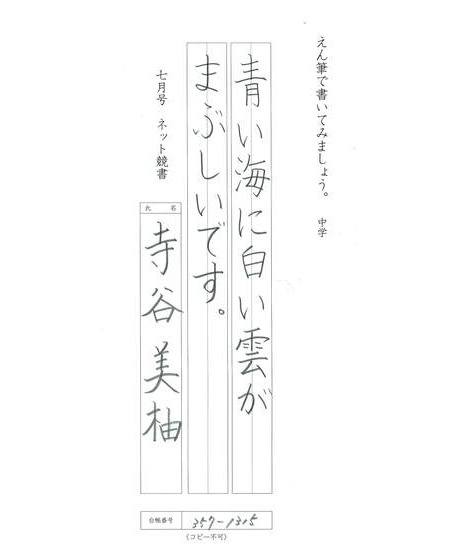 えん筆で書いてみましょう。 中学
青い海に白い雲が
まぶしいです。
七月号 ネット競書
氏名
寺谷美柚
台帳番号 357-1315
(コピー不可)